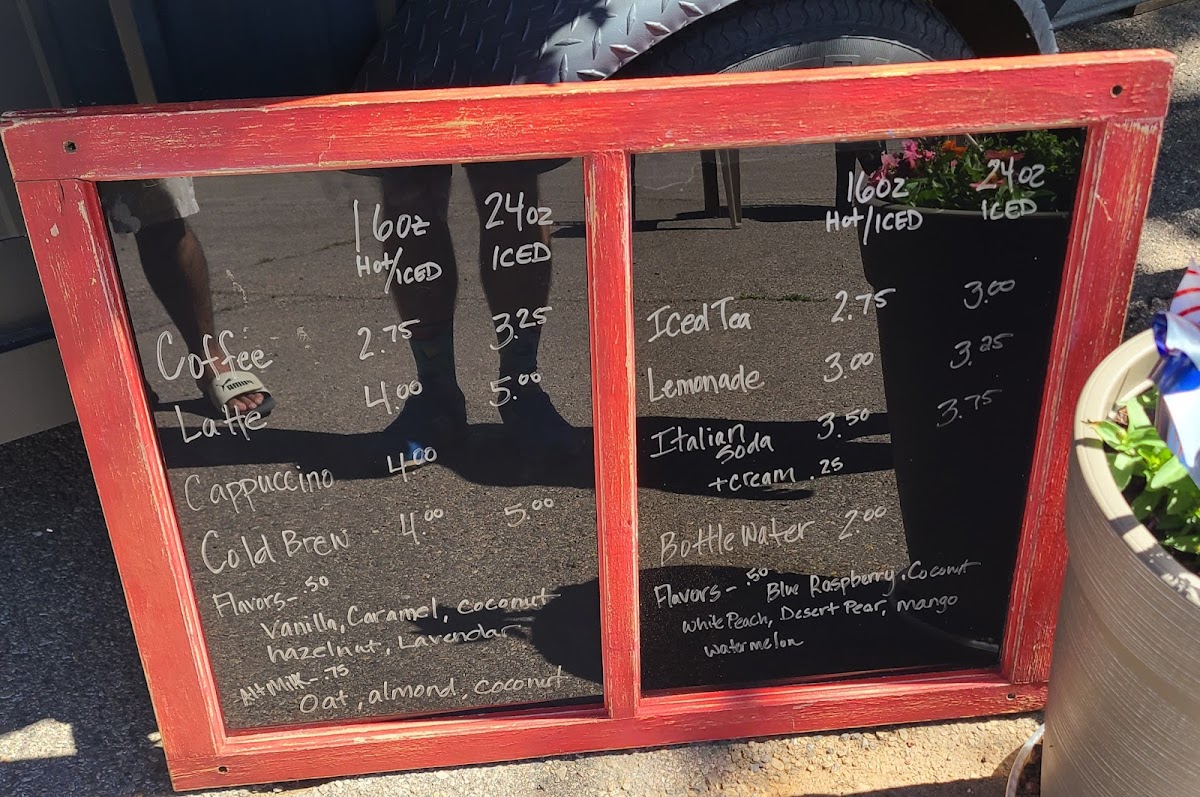 16oz 24oz
Hot/ICED ICED
Coffee 2.75 3.25
Latte 4.00 5.00
Cappuccino 4.00
Cold Brew 4.00 5.00
Flavors - .50
Vanilla, Caramel, coconut
hazelnut, Lavendar
Alt Milk - .75
Oat, almond, coconut
16oz 24oz
Hot/ICED ICED
Iced Tea 2.75 3.00
Lemonade 3.00 3.25
Italian 3.50 3.75
Soda
+cream .25
Bottle Water 2.00
Flavors - .50 Blue Raspberry, Coconut
White Peach, Desert Pear, mango
watermelon
PUMA